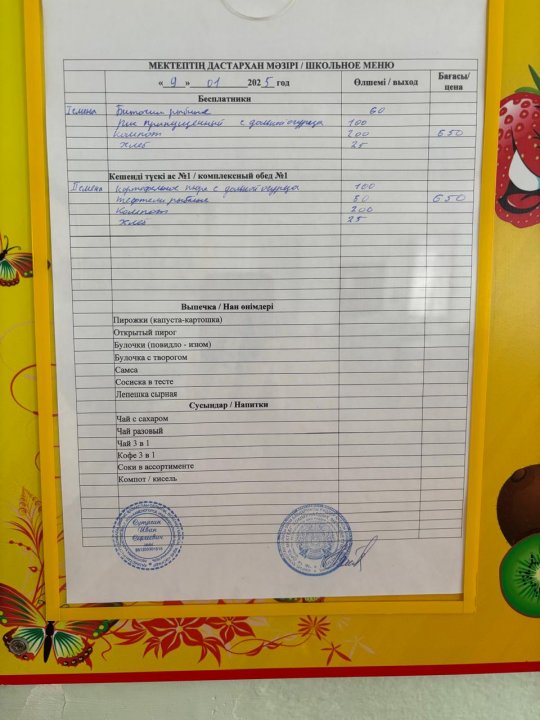 МЕКТЕПТІҢ ДАСТАРХАН МӘЗІРІ / ШКОЛЬНОЕ МЕНЮ
« 9 » 01 2025 год Өлшемі / выход Бағасы/ цена
Бесплатники
I смена Биточки рыбные 60
Рис припущенный с долькой огурца 100
Компот 200 650
Хлеб 25
Кешенді түскі ас №1 / комплексный обед №1
II смена Картофельное пюре с долькой огурца 100
Тефтели рыбные 50 650
Компот 200
Хлеб 25
Выпечка / Нан өнімдері
Пирожки (капуста-картошка)
Открытый пирог
Булочки (повидло - изюм)
Булочка с творогом
Самса
Сосиска в тесте
Лепешка сырная
Сусындар / Напитки
Чай с сахаром
Чай разовый
Чай 3 в 1
Кофе 3 в 1
Соки в ассортименте
Компот / кисель
Иван
Сергеевич